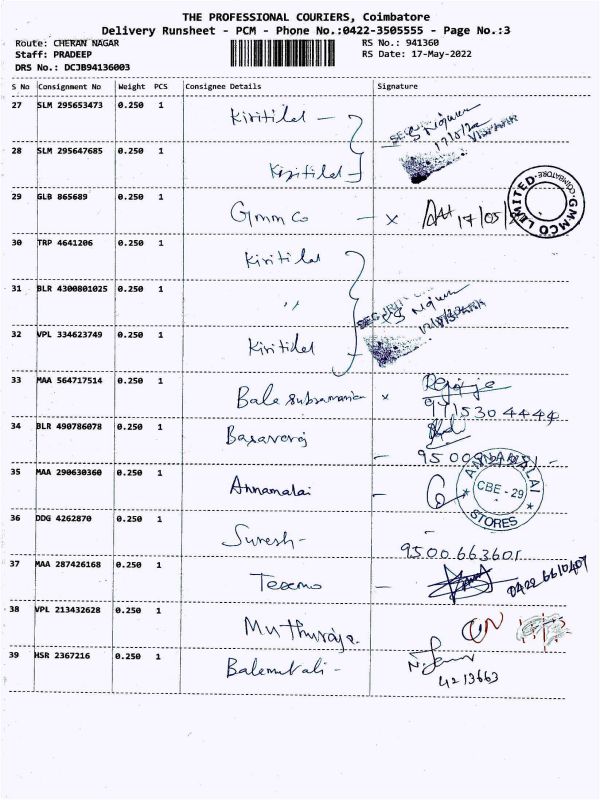 THE PROFESSIONAL COURIERS, Coimbatore
Delivery Runsheet - PCM - Phone No.:0422-3505555 - Page No.:3
Route: CHERAN NAGAR RS No.: 941360
Staff: PRADEEP RS Date: 17-May-2022
DRS No.: DCJB94136003
S No Consignment No Weight PCS Consignee Details Signature
27 SLM 295653473 0.250 1 Kiritilal -
17/5/22
28 SLM 295647685 0.250 1 Kiritilal -
29 GLB 865689 0.250 1 Gmmco - x 17/05/
GMMCO LIMITED COIMBATORE
30 TRP 4641206 0.250 1 Kiritilal
31 BLR 4300801025 0.250 1 ,,
32 VPL 334623749 0.250 1 Kiritilal
33 MAA 564717514 0.250 1 Bala subramanian x
9715304444
34 BLR 490786078 0.250 1 Basavaraj
35 MAA 290630360 0.250 1 Annamalai -
ANNAMALAI STORES CBE - 29
36 DDG 4262870 0.250 1 Suresh -
9500663601
37 MAA 287426168 0.250 1 Texmo - 0422 6610401
38 VPL 213432628 0.250 1 Muthuraja
39 HSR 2367216 0.250 1 -
4213663